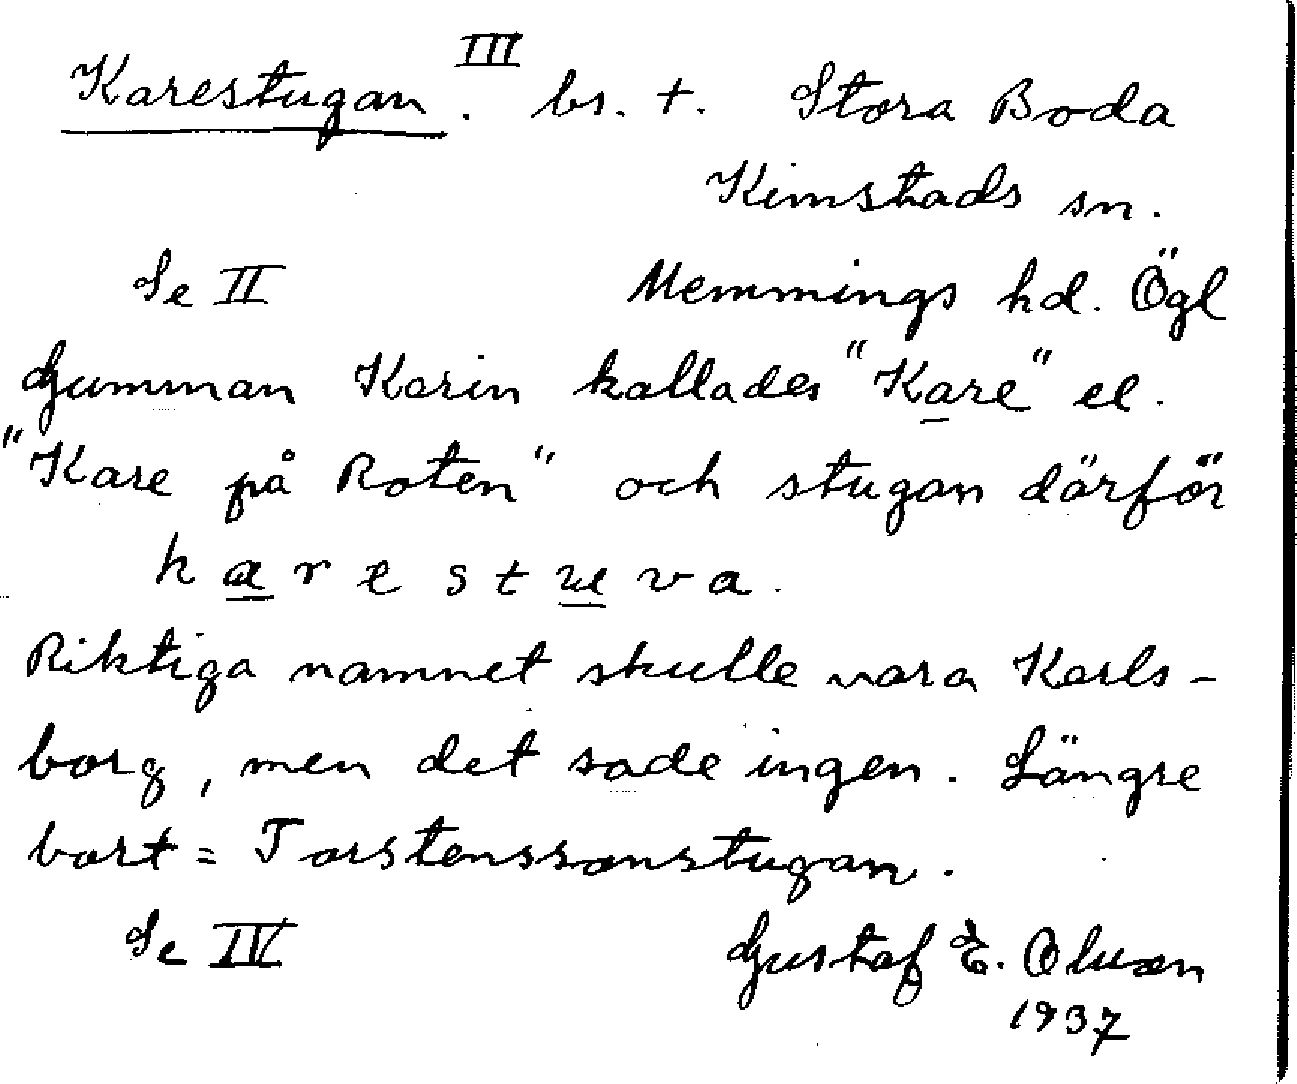 Karestugan. III bs. +. Stora Boda
Kimstads sn.
Se II Memmings hd. Ögl
Gumman Karin kallades "Kare" el.
"Kare på Roten" och stugan därför
k a r e s t u v a.
Riktiga namnet skulle vara Karls-
borg, men det sade ingen. Längre
bort = Torstenssonstugan.
Se IV Gustaf E. Olsson
1937